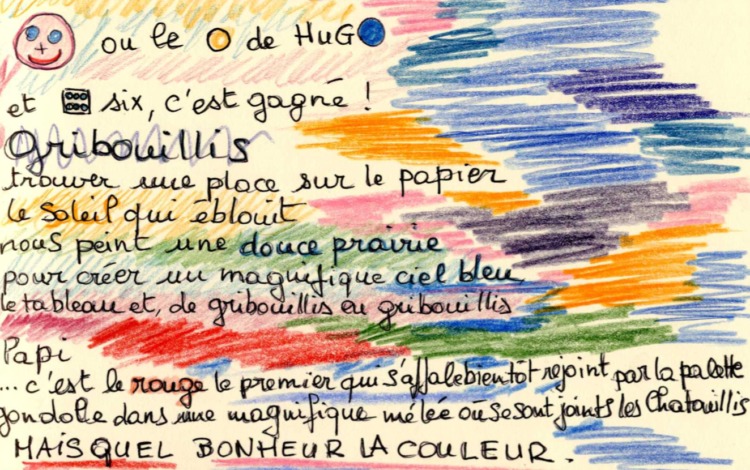 ou le de HuGO
et six, c'est gagné !
Gribouillis
trouver une place sur le papier
le soleil qui éblouit
nous peint une douce prairie
pour créer un magnifique ciel bleu,
le tableau et, de gribouillis en gribouillis
Papi
... c'est le rouge le premier qui s'affale bientôt rejoint par la palette
gondolle dans une magnifique mêlée où se sont joints les Chatouillis
MAIS QUEL BONHEUR LA COULEUR.